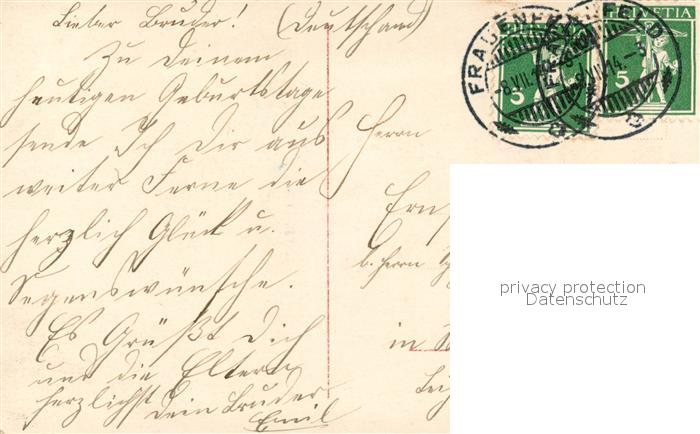 Lieber Bruder! (Deutschland)
Zu Deinem
heutigen Geburtstage
sende Ich Dir aus
weiter Ferne die
herzlich Glück u.
Segenswünsche.
Es Grüßt Dich
und die Eltern
herzlichst Dein Bruder
Emil
FRAUENFELD
-8.VII.14.-
HELVETIA
5
FRAUENFELD
-8.VII.14.-
HELVETIA
5
Herrn
Ern
b. Herrn
in
privacy protection
Datenschutz